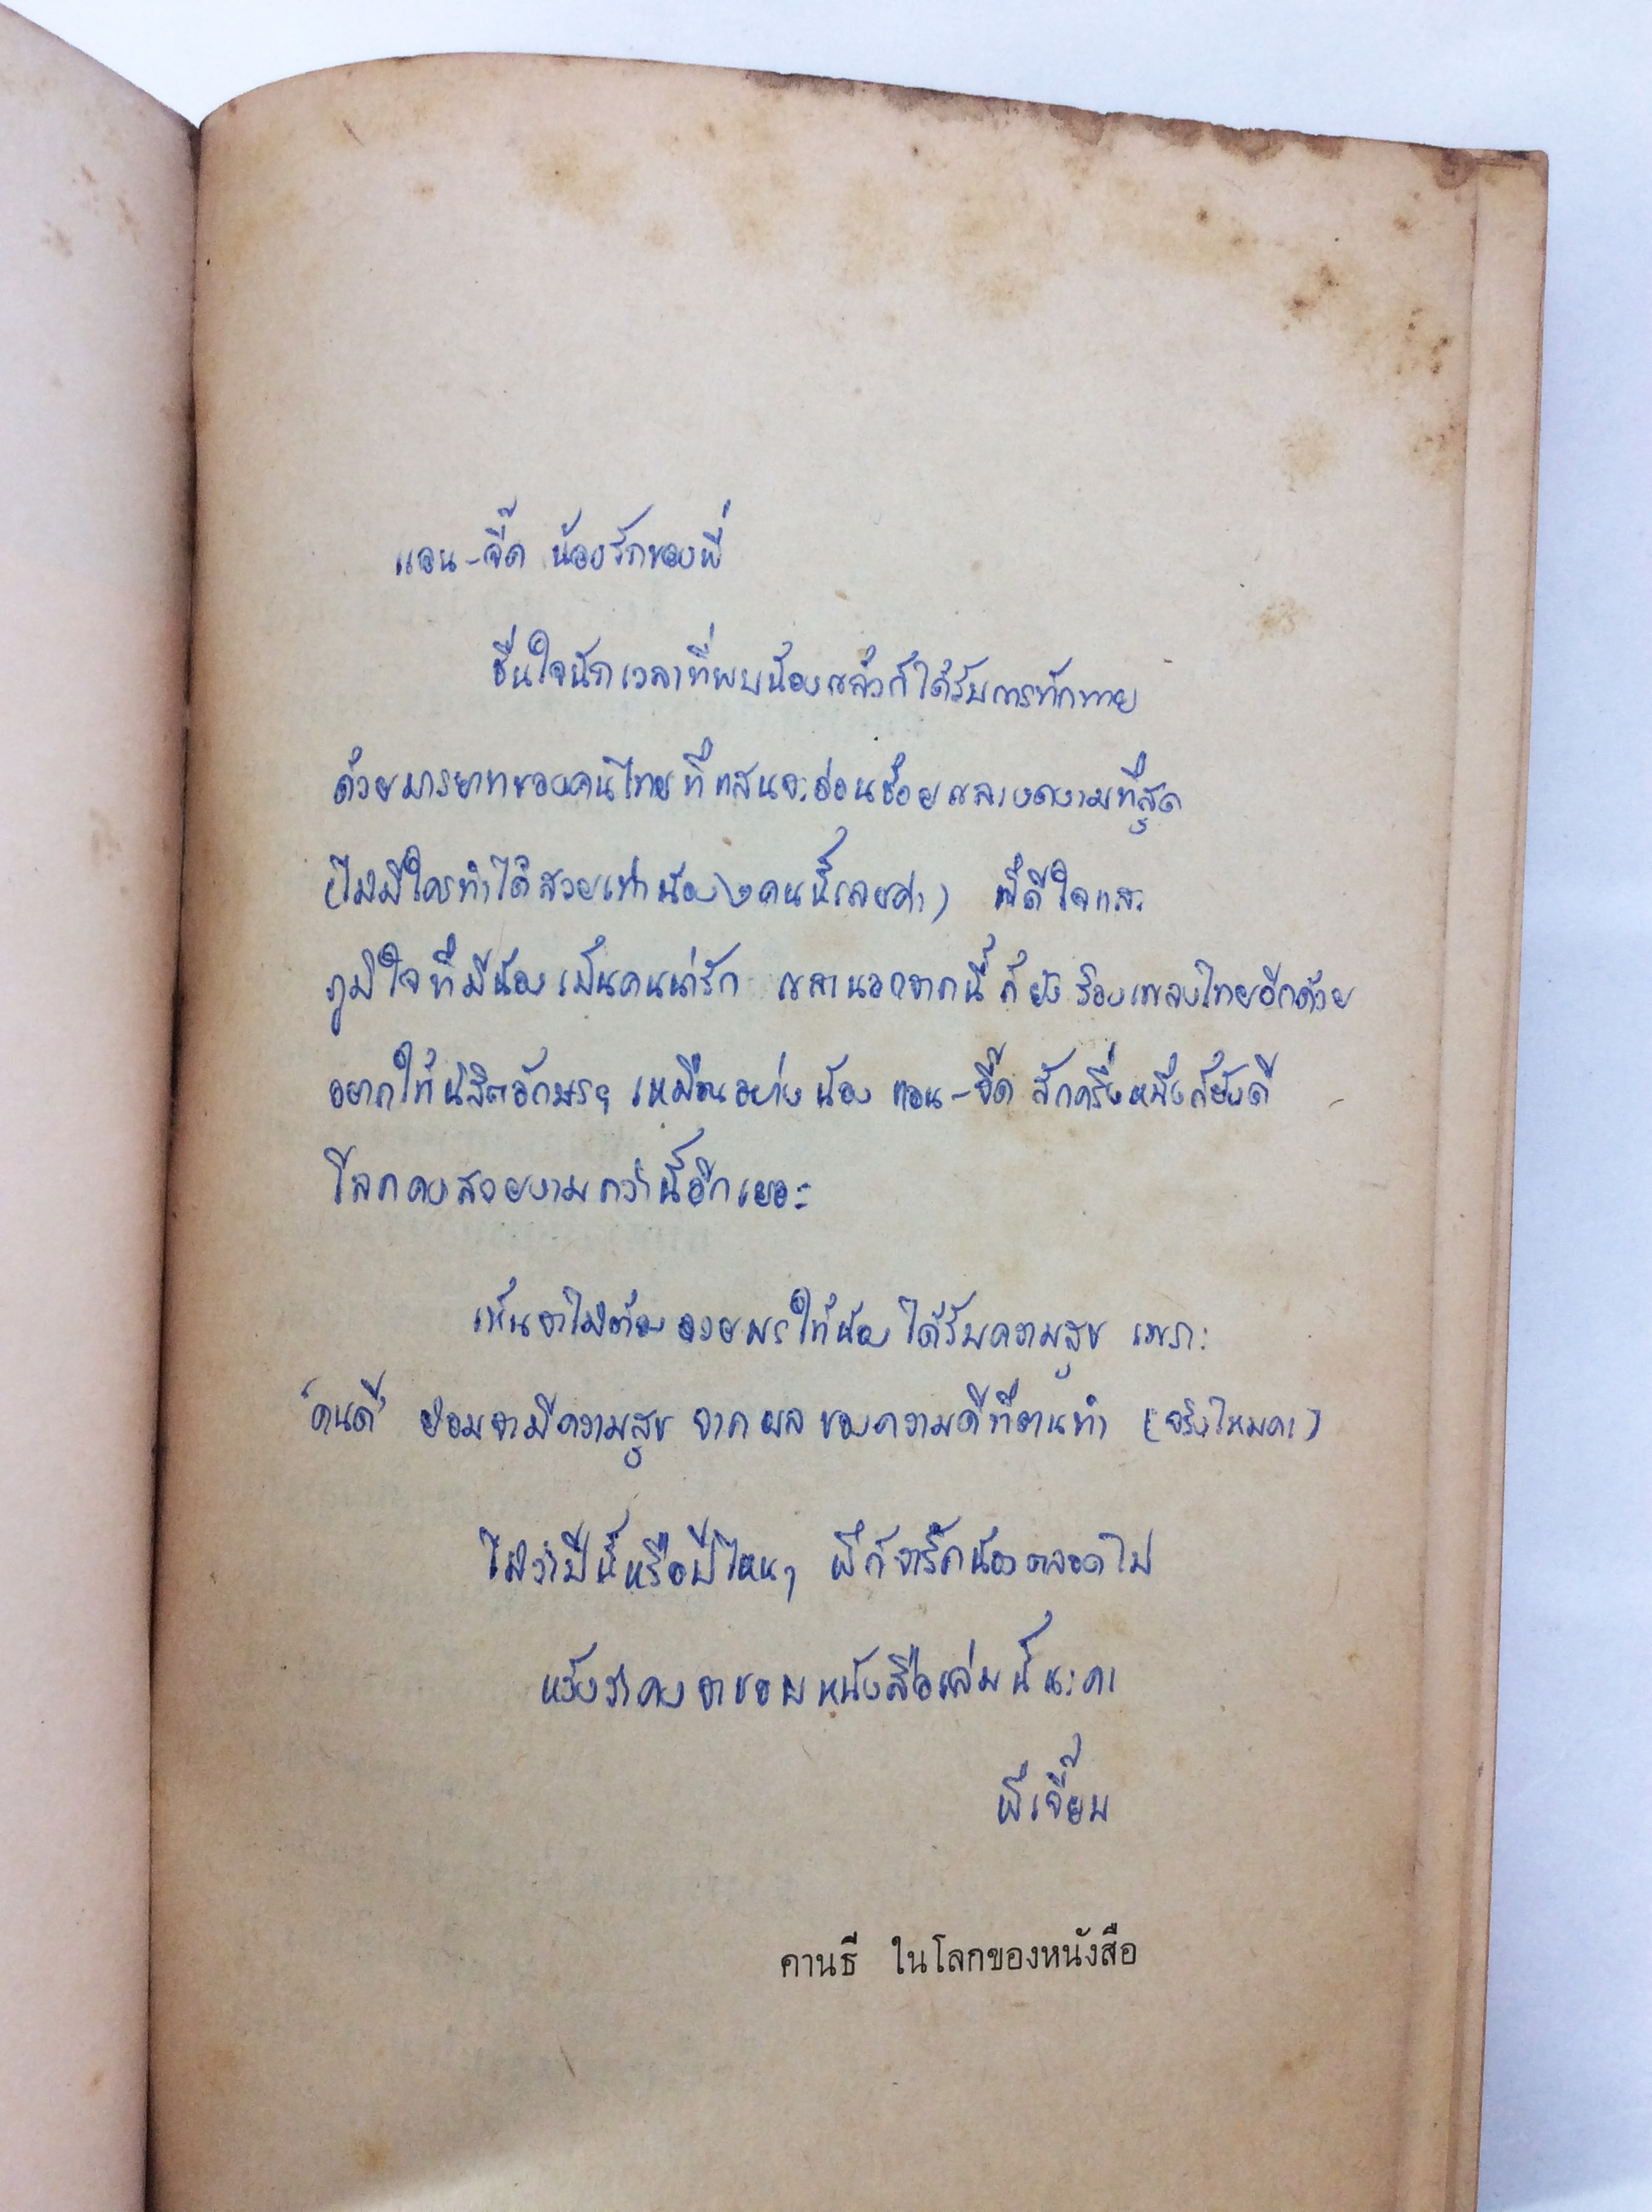 แอน-จี๊ด น้องรักของพี่
ชื่นใจนักเวลาที่พบน้องแล้วก็ได้รับการทักทาย
ด้วยมารยาทของคนไทยที่แสนจะอ่อนช้อยและงดงามที่สุด
(ไม่มีใครทำได้สวยเท่าน้อง ๒ คนนี้เลยค่ะ) พี่ดีใจและ
ภูมิใจที่มีน้องเป็นคนน่ารัก และนอกจากนี้ก็ยังร้องเพลงไทยอีกด้วย
อยากให้นิสิตอักษรฯ เหมือนอย่างน้อง แอน-จี๊ด สักครึ่งหนึ่งก็ยังดี
โลกคงสวยงามกว่านี้อีกเยอะ
เห็นจะไม่ต้องอวยพรให้น้องได้รับความสุข เพราะ
'คนดี' ย่อมจะมีความสุข จากผลของความดีที่ตนทำ (จริงไหมคะ)
ไม่ว่าปีนี้หรือปีไหนๆ พี่ก็จะรักน้องตลอดไป
หวังว่าคงจะชอบหนังสือเล่มนี้นะคะ
พี่เจี๊ยบ
คานธี ในโลกของหนังสือ